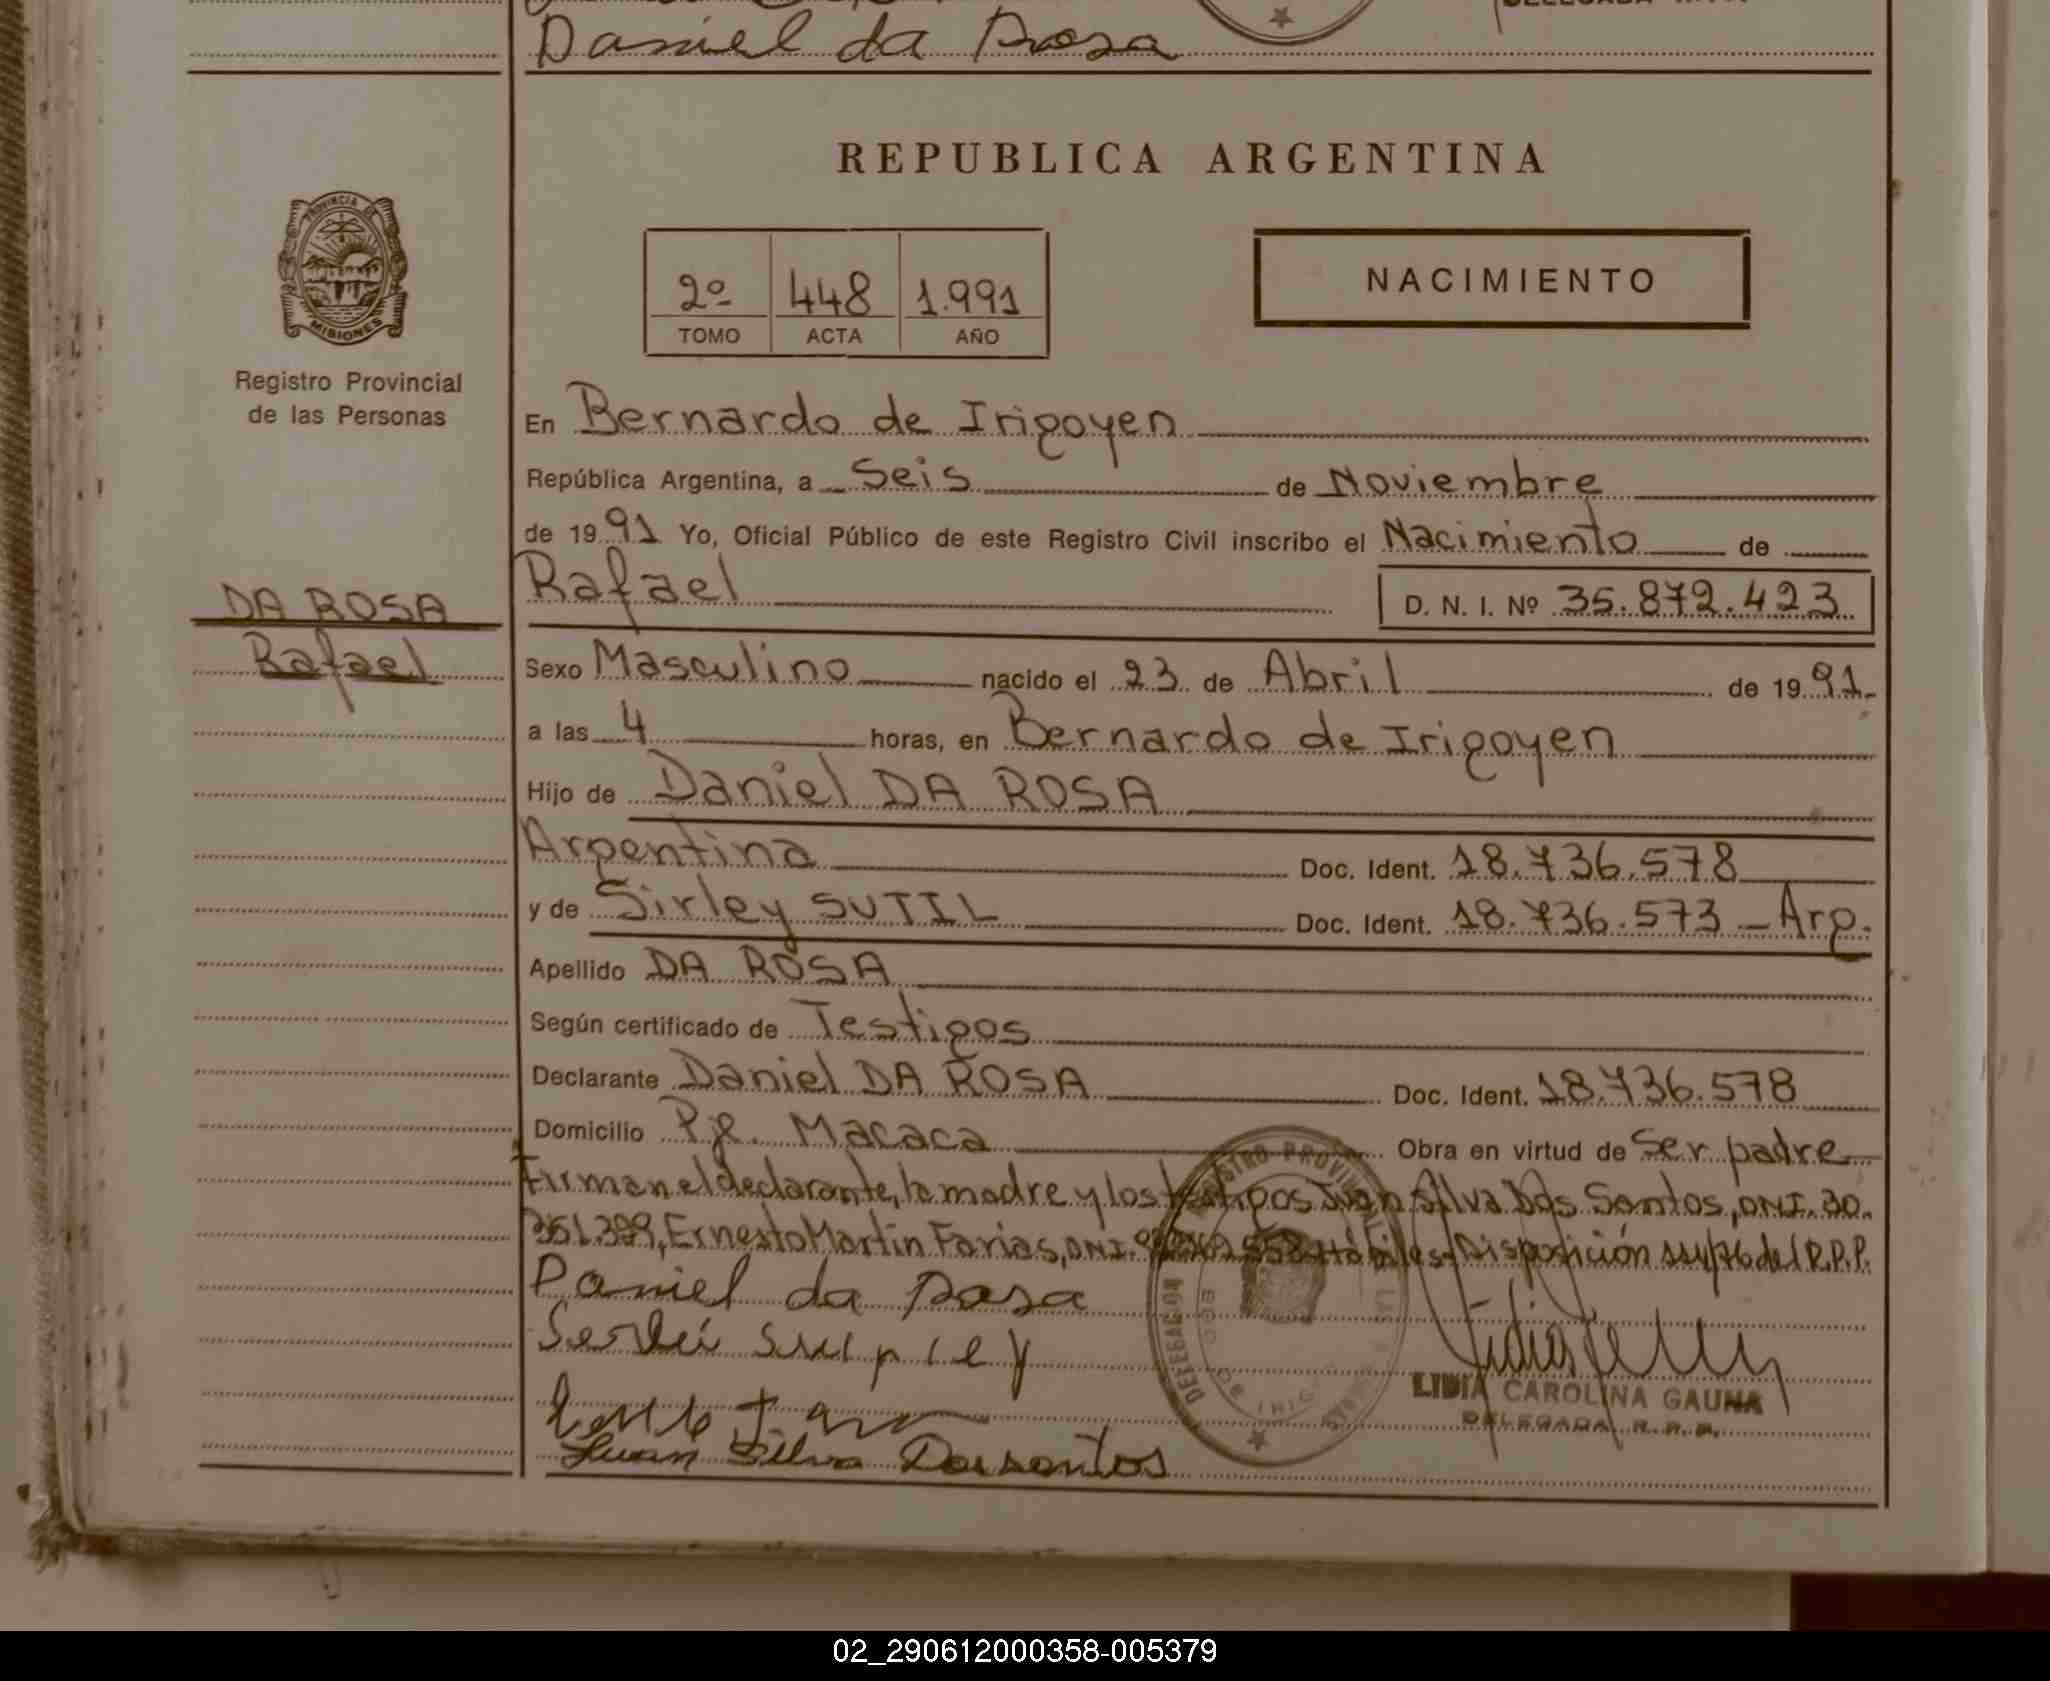 Daniel da Rosa
REPUBLICA ARGENTINA
PROVINCIA DE
MISIONES
Registro Provincial
de las Personas
2º 448 1.991
TOMO ACTA AÑO
NACIMIENTO
En Bernardo de Irigoyen
República Argentina, a Seis de Noviembre
de 1991 Yo, Oficial Público de este Registro Civil inscribo el Nacimiento de
Rafael D. N. I. Nº 35.872.423
DA ROSA
Rafael
Sexo Masculino nacido el 23 de Abril de 1991.
a las 4 horas, en Bernardo de Irigoyen
Hijo de Daniel DA ROSA
Argentina Doc. Ident. 18.736.578
y de Sirley SUTIL Doc. Ident. 18.736.573 - Arg.
Apellido DA ROSA
Según certificado de Testigos
Declarante Daniel DA ROSA Doc. Ident. 18.736.578
Domicilio Pje. Macaca Obra en virtud de Ser padre
Firman el declarante, la madre y los testigos Juan Silva Dos Santos, DNI. 30.
Ernesto Martin Farias, DNI. Hábiles. Disposición del R.P.P.
Daniel da Rosa
Juan Silva Dossantos
LIDIA CAROLINA GAUNA
DELEGADA R.P.P.
02_290612000358-005379